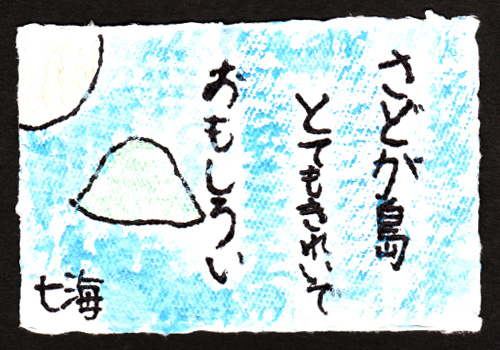 さどが島
とてもきれいで
おもしろい
七海